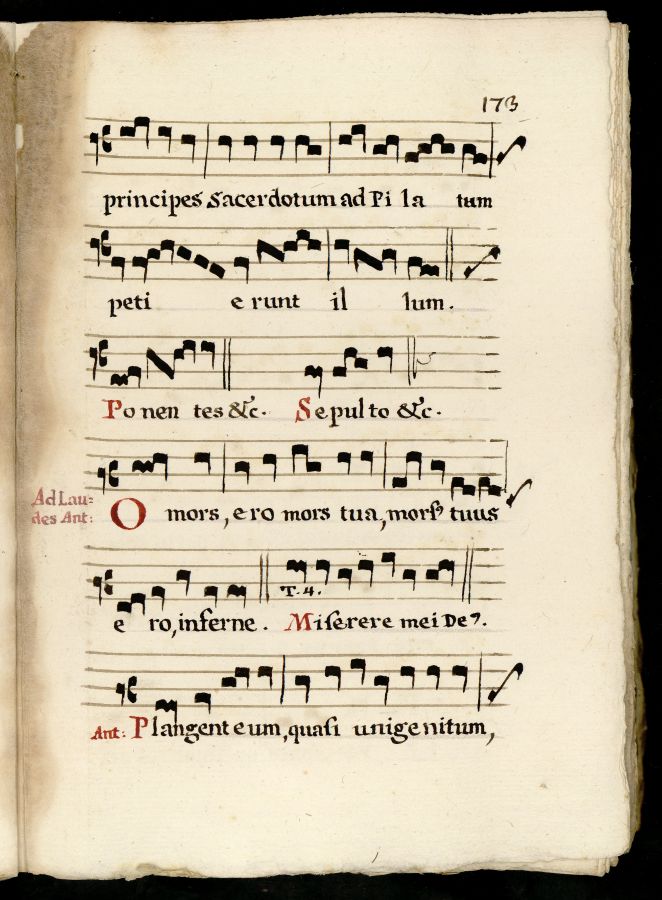 173
principes Sacerdotum ad Pi la tum
peti e runt il lum.
Ponen tes &c. Sepulto &c.
Ad Lau=
des Ant:
O mors, ero mors tua, mors⁹ tuus
e ro, inferne. T. 4. Miserere mei De⁹.
Ant: Plangent eum, quasi unigenitum,